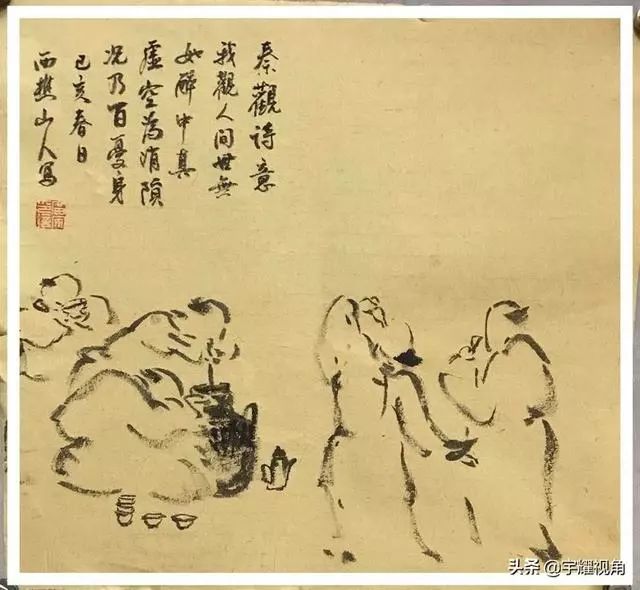 秦觀詩意
我觀人间世無
如醉中真
虛空為消隕
况乃百憂身
己亥春日
西樵山人寫
头条 @宇耀视角